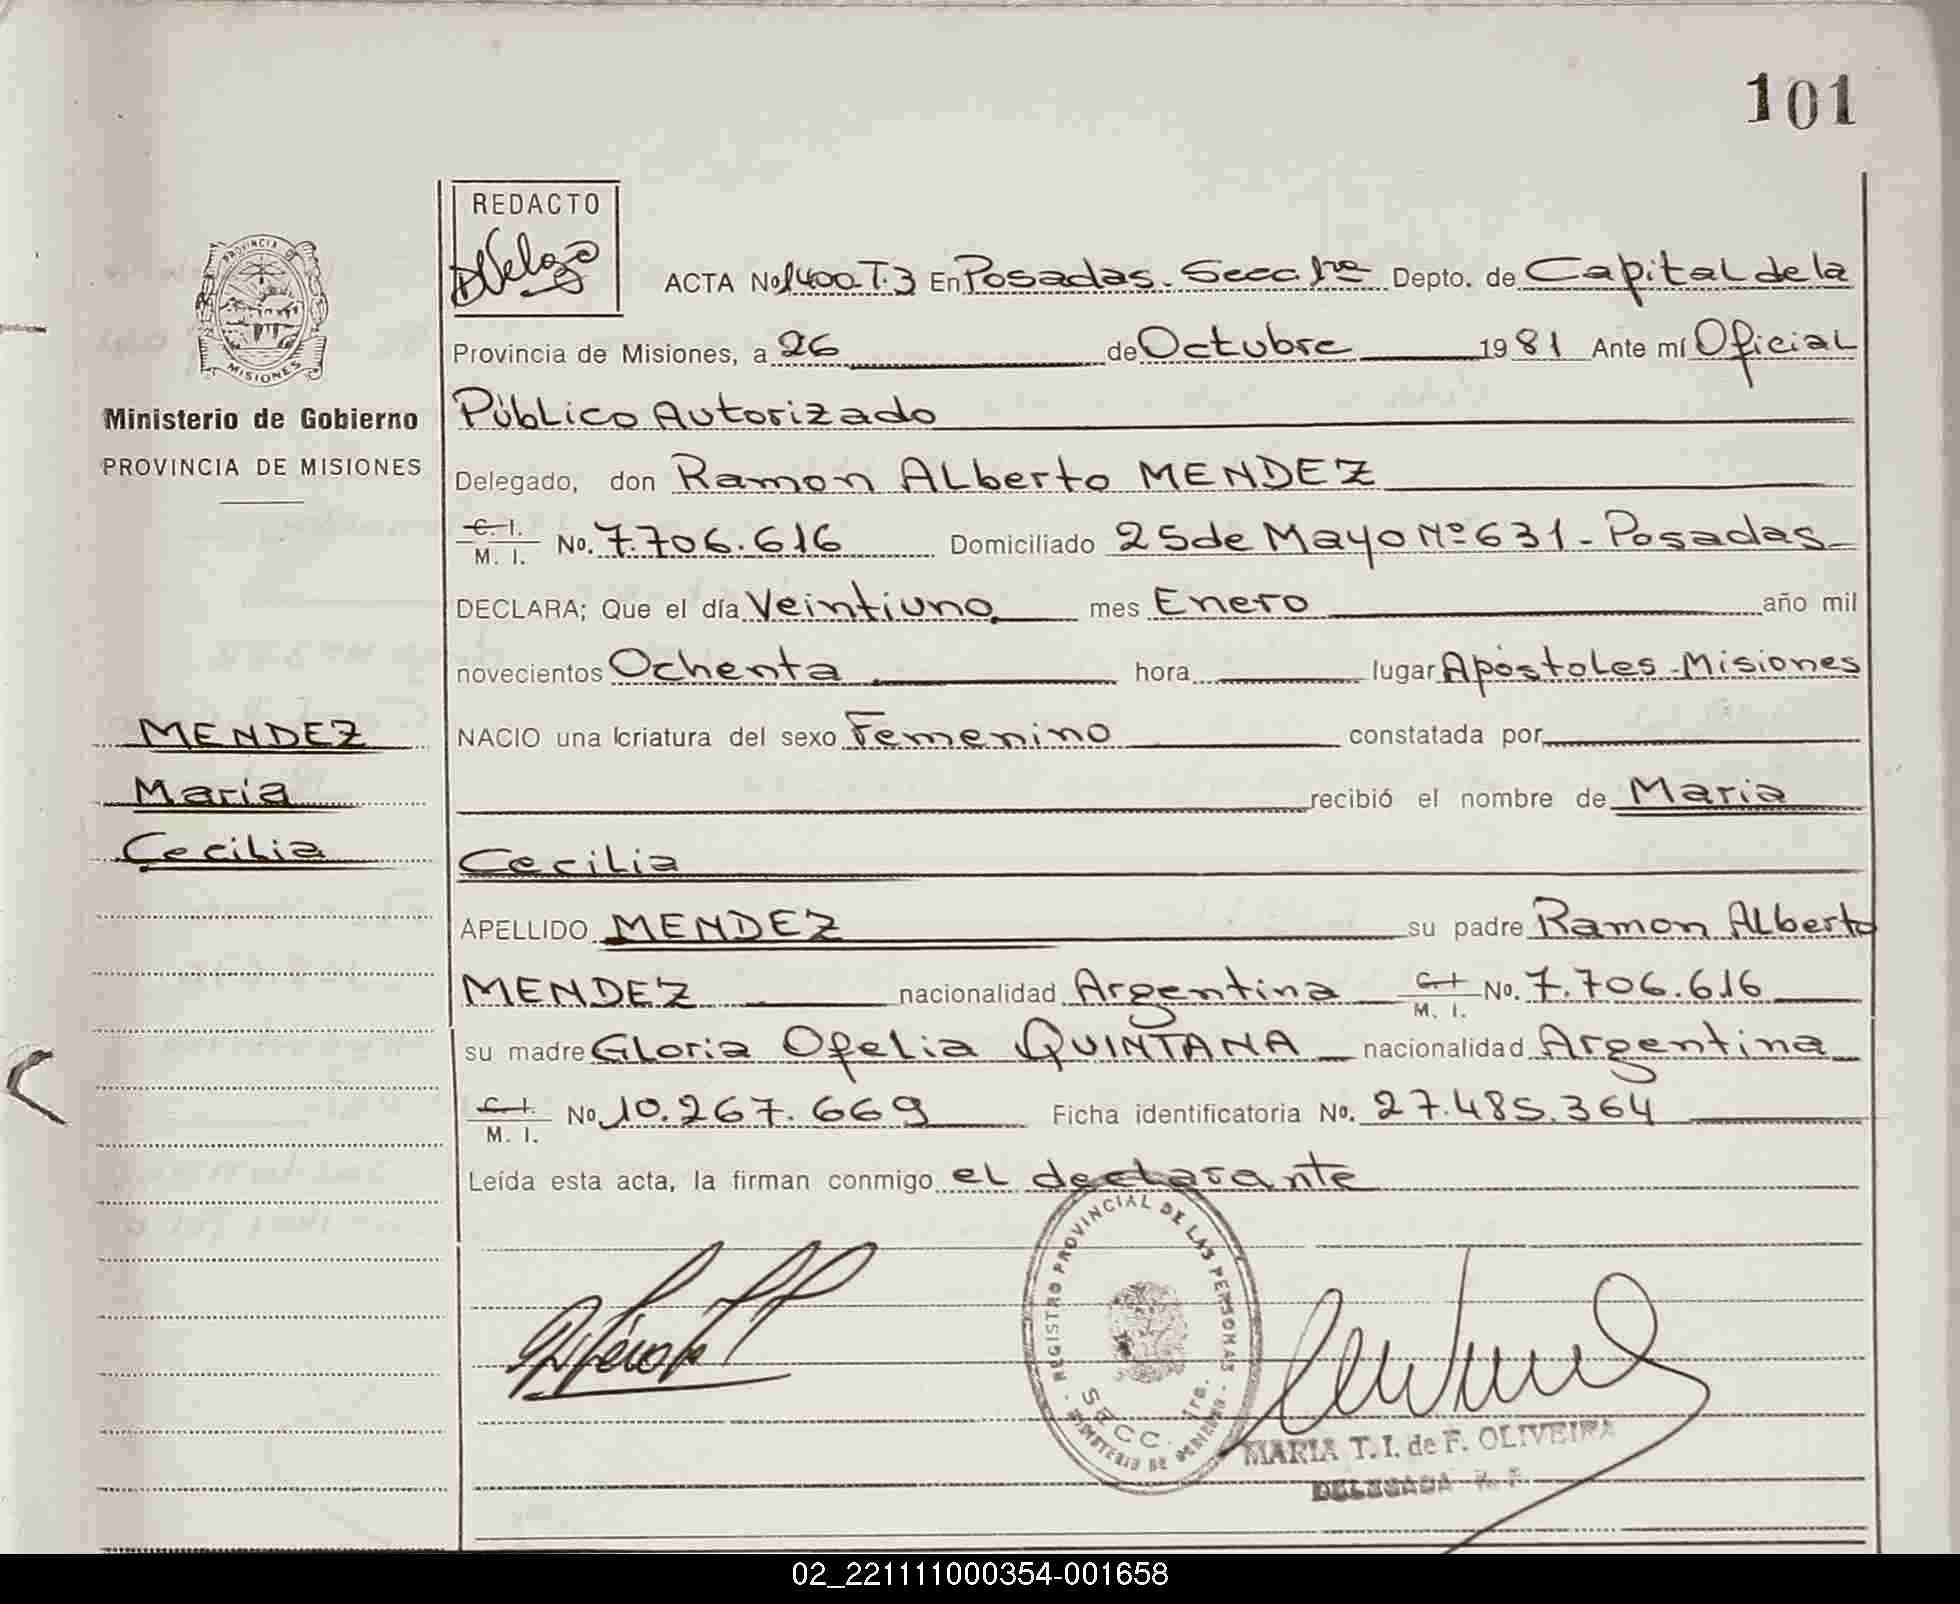 101
REDACTO
PROVINCIA DE
MISIONES
ACTA No 1400 T.3 En Posadas - Secc. 1ra Depto. de Capital de la
Provincia de Misiones, a 26 de Octubre 1981 Ante mí Oficial
Ministerio de Gobierno
Público Autorizado
PROVINCIA DE MISIONES
Delegado, don Ramon Alberto MENDEZ
C. I.
M. I. No. 7.706.616 Domiciliado 25 de Mayo Nº 631 - Posadas -
DECLARA; Que el día Veintiuno mes Enero año mil
novecientos Ochenta hora lugar Apóstoles - Misiones
MENDEZ
NACIO una criatura del sexo Femenino constatada por
Maria
recibió el nombre de Maria
Cecilia
Cecilia
APELLIDO MENDEZ su padre Ramon Alberto
MENDEZ nacionalidad Argentina C. I. M. I. No. 7.706.616
su madre Gloria Ofelia QUINTANA nacionalidad Argentina
C. I.
M. I. No 10.267.669 Ficha identificatoria No. 27.485.364
Leída esta acta, la firman conmigo el declarante
REGISTRO PROVINCIAL DE LAS PERSONAS
SECC. 1ra.
MINISTERIO DE GOBIERNO
MARIA T. I. de F. OLIVEIRA
DELEGADA R. P.
02_221111000354-001658